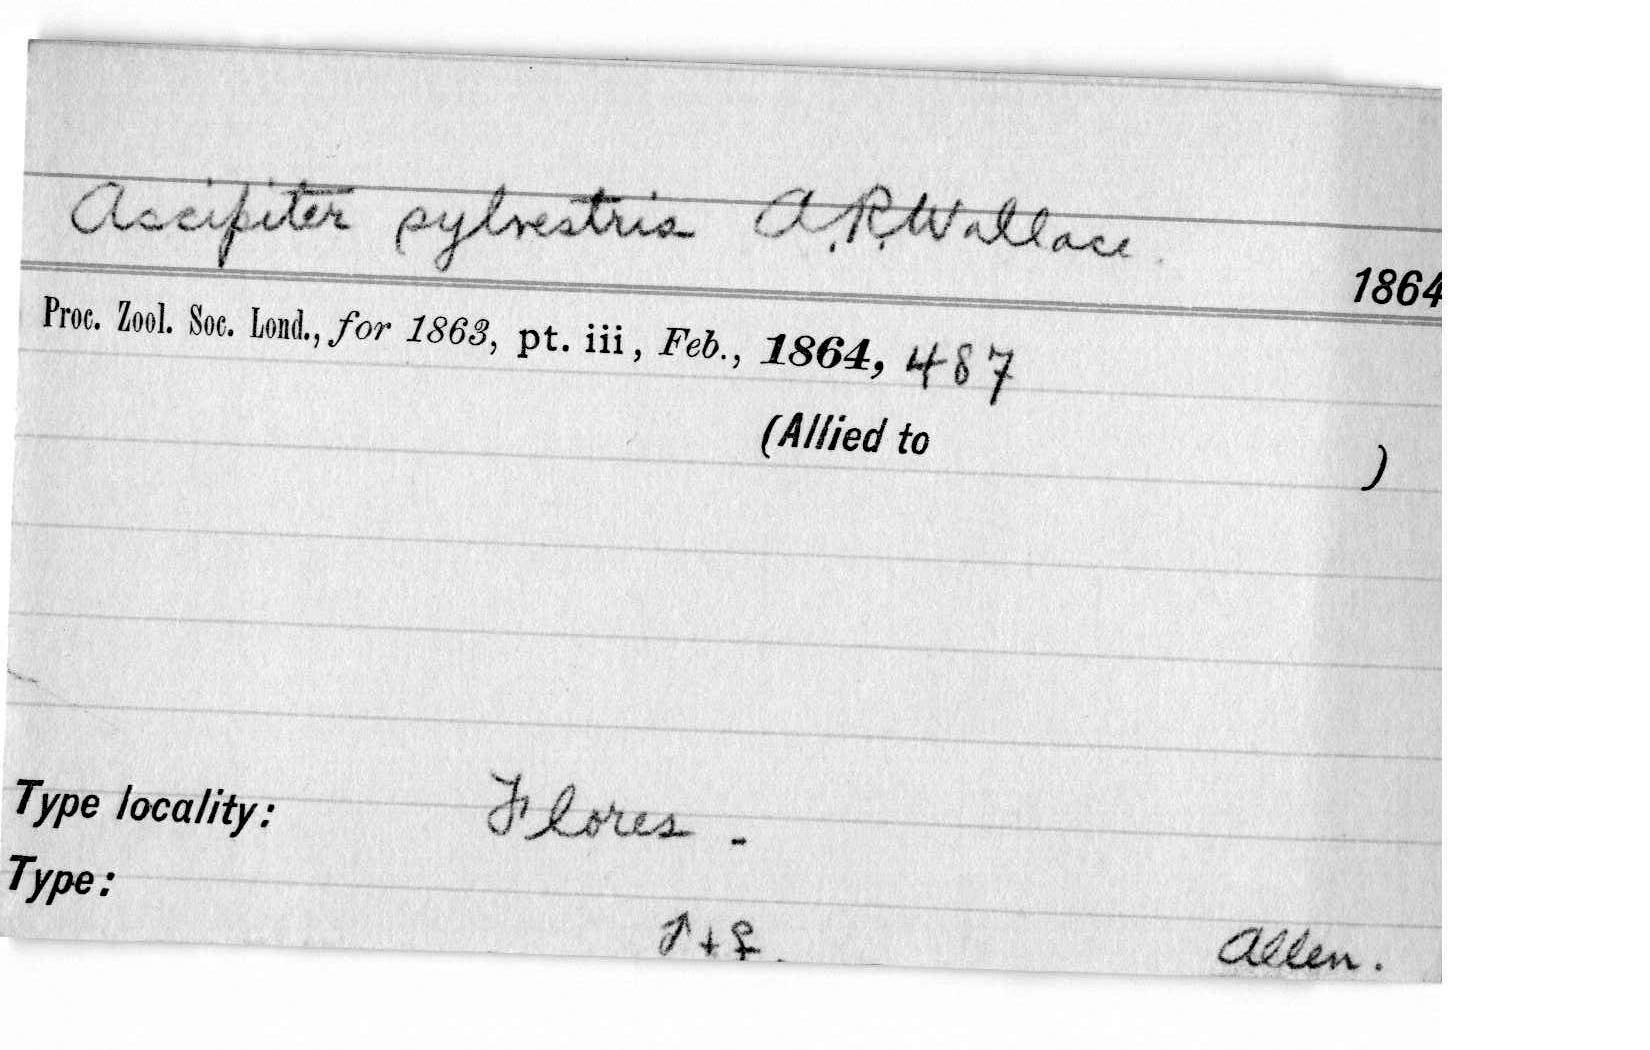 Accipiter sylvestris A.R.Wallace.
1864
Proc. Zool. Soc. Lond., for 1863, pt. iii, Feb., 1864, 487
(Allied to )
Type locality: Flores -
Type:
♂ + ♀. Allen.